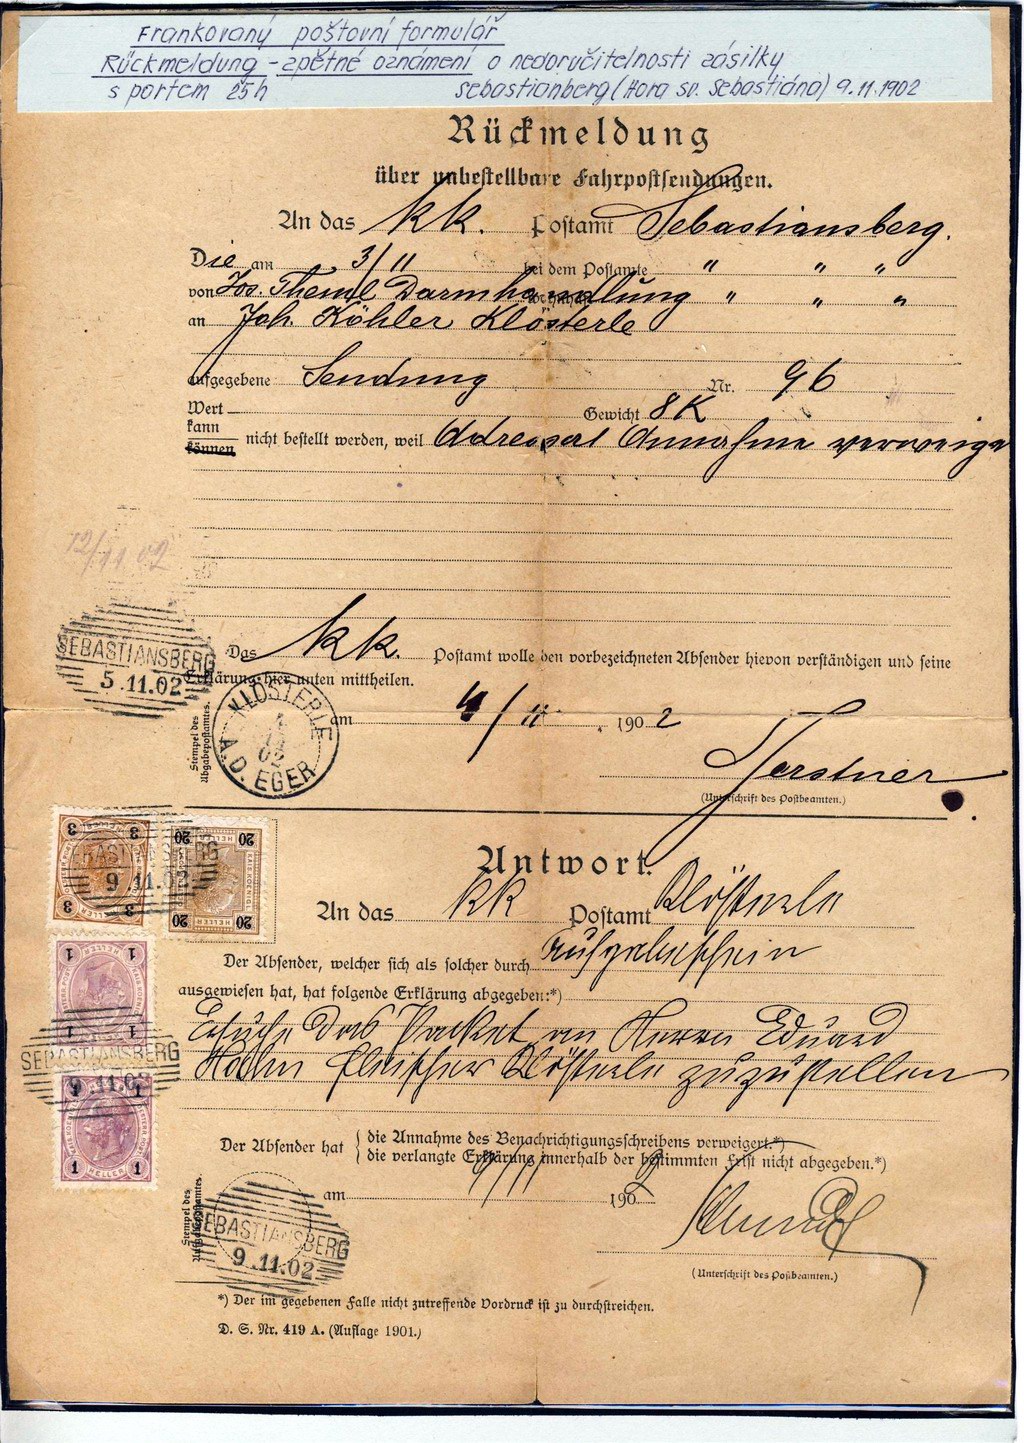 Frankovaný poštovní formulář
Rückmeldung - zpětné oznámení o nedoručitelnosti zásilky
s portem 25h Sebastianberg (Hora sv. Sebastiána) 9.11.1902
Rückmeldung
über unbestellbare Fahrpostsendungen.
An das kk. Postamt Sebastiansberg.
Die am 3/11 bei dem Postamte " " "
von Jos. Theml Darmhandlung " " "
an Joh. Köhler Klösterle
aufgegebene Sendung Nr. 96
Wert Gewicht 8K
kann
können nicht bestellt werden, weil Adressat Annahme verweige
12/11 02
Das kk. Postamt wolle den vorbezeichneten Absender hievon verständigen und seine
Erklärung hier unten mittheilen.
SEBASTIANSBERG
5.11.02
am 4/11 1902
Stempel des
Abgabepostamtes.
KLÖSTERLE
A.D. EGER
(Unterschrift des Postbeamten.)
3 3 20 20
SEBASTIANSBERG
9.11.02
3 3 20 HELLER 20
Antwort.
An das kk Postamt Klösterle
Der Absender, welcher sich als solcher durch Aufgabeschein
ausgewiesen hat, hat folgende Erklärung abgegeben:*)
Ersuche das Packet an Herrn Eduard
Fleischer Klösterle zuzustellen
1 1
1 1
SEBASTIANSBERG
9.11.02
1 1
1 HELLER 1
Der Absender hat { die Annahme des Benachrichtigungsschreibens verweigert.*)
die verlangte Erklärung innerhalb der bestimmten Frist nicht abgegeben.*)
am 9/11 1902
Stempel des
Aufgabepostamtes.
SEBASTIANSBERG
9.11.02
(Unterschrift des Postbeamten.)
*) Der im gegebenen Falle nicht zutreffende Vordruck ist zu durchstreichen.
D. S. Nr. 419 A. (Auflage 1901.)